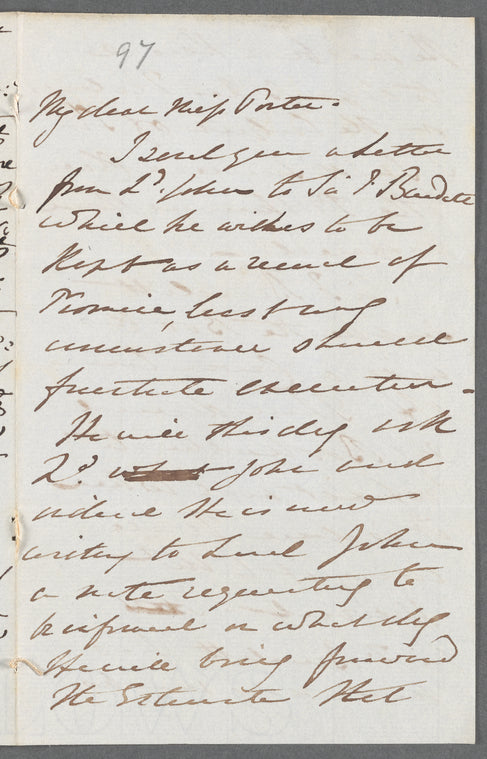 97
My dear Miss Porter.
I send you a letter
from Ld. John to Sir F. Burdett
which he wishes to be
Kept as a record of
Promise, lest any
circumstance should
frustrate execution.
He will this day ask
Ld. John and
indeed He is now
writing to Lord John
a note requesting to
be informed on what day
He will bring forward
the Estimate that